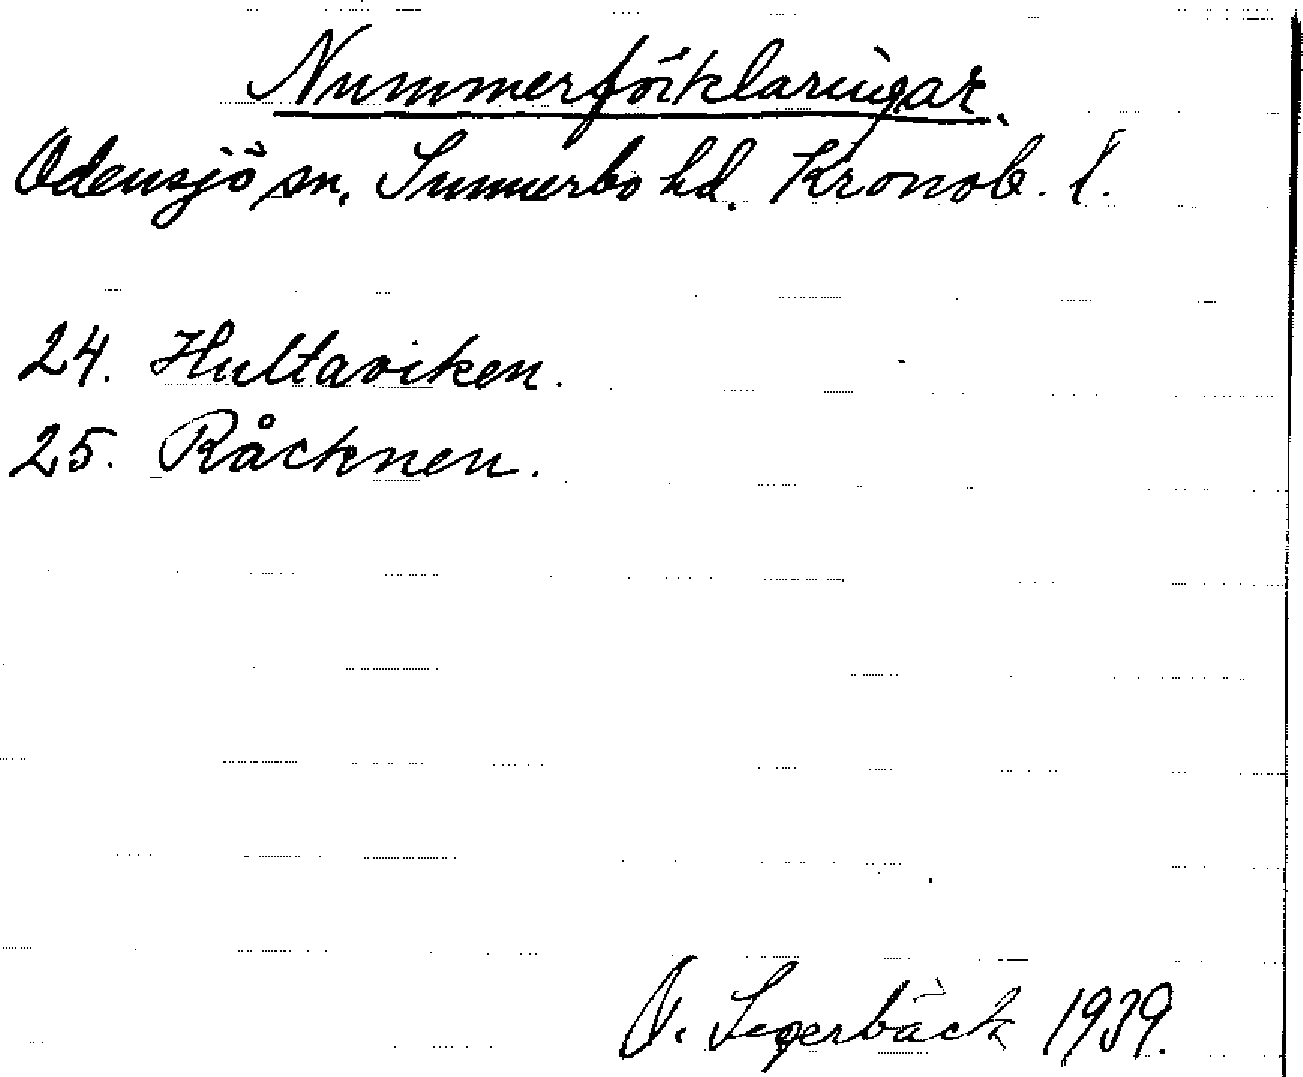 Nummerförklaringar.
Odensjö sn. Sunnerbo hd. Kronob. l.
24. Hultaviken.
25. Råcknen.
O. Segerbäck 1939.